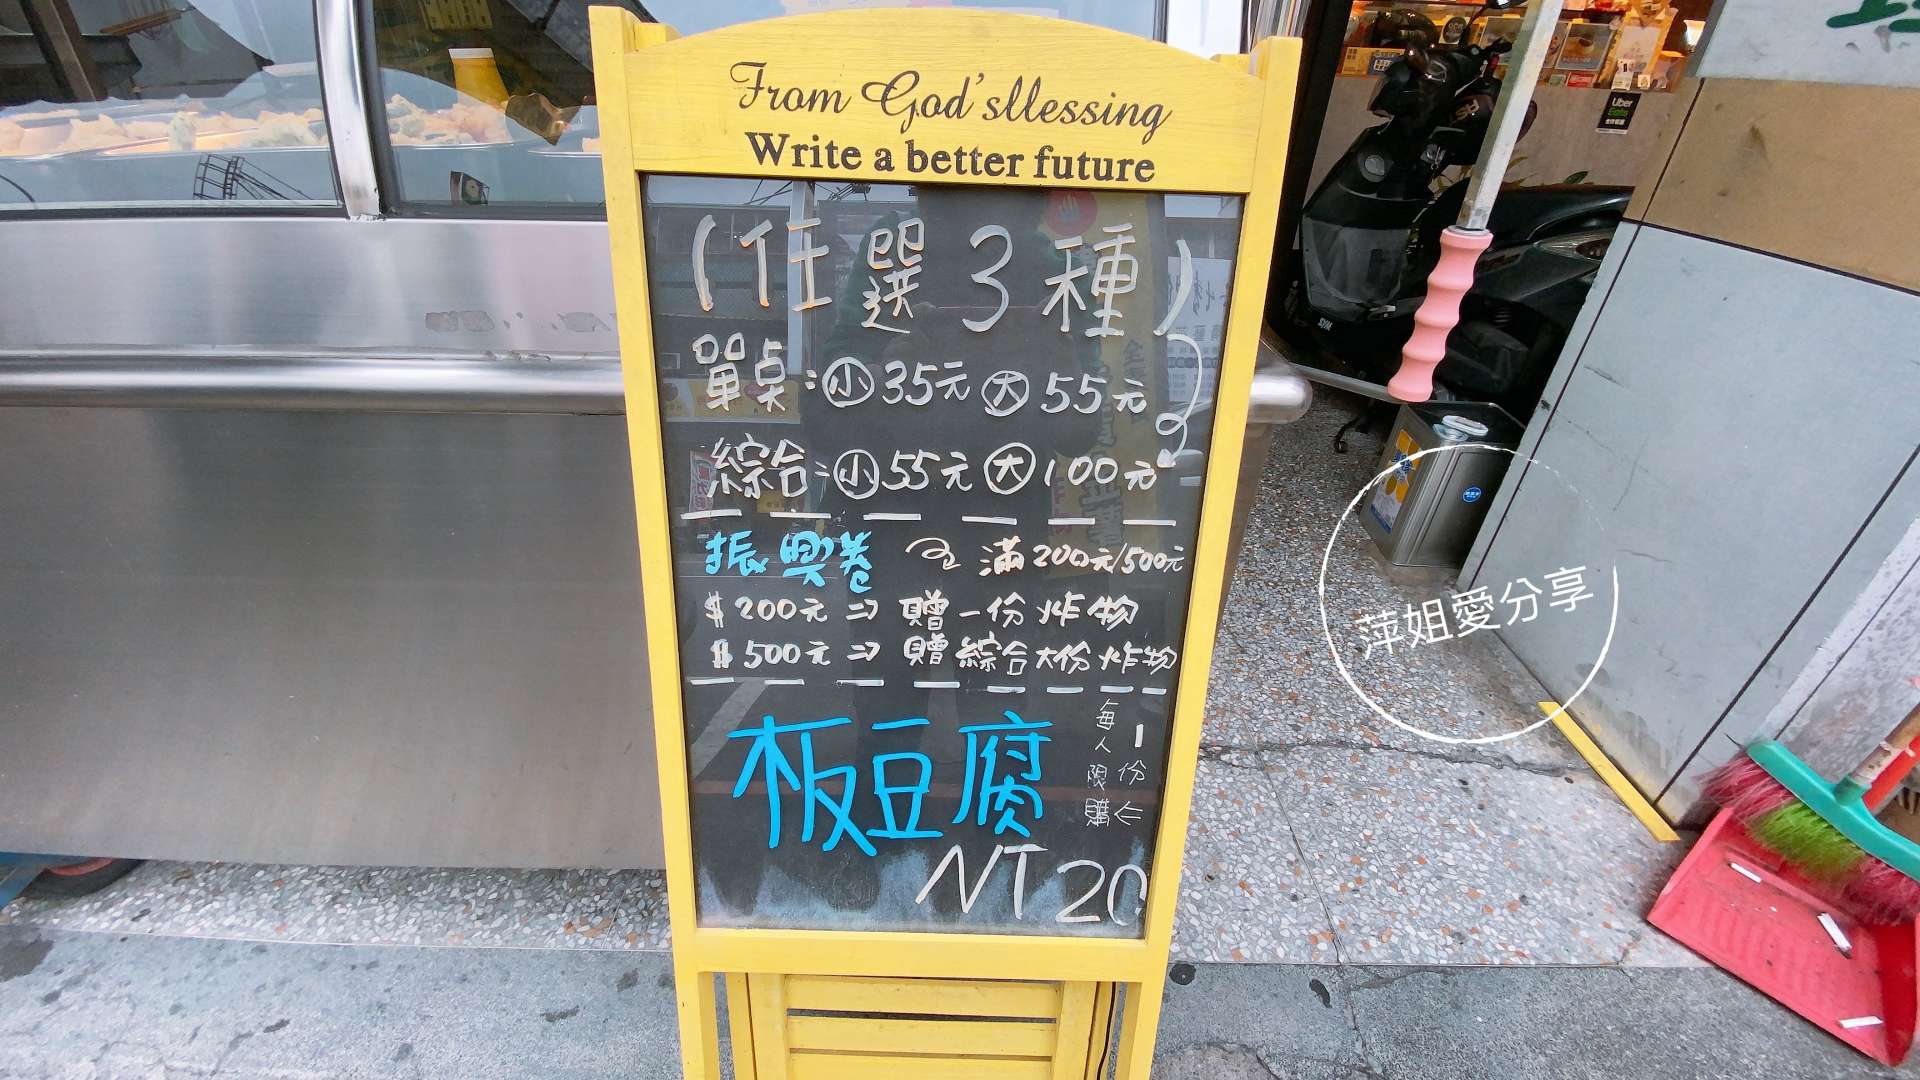 From God'sllessing
Write a better future
(任選3種)
單桌:小35元 大55元
綜合:小55元 大100元
振興卷 滿200元/500元
$200元⇒贈一份炸物
$500元⇒贈綜合大份炸物
板豆腐
每人限購
1份
NT20
萍姐愛分享
Uber
Eats
SYM